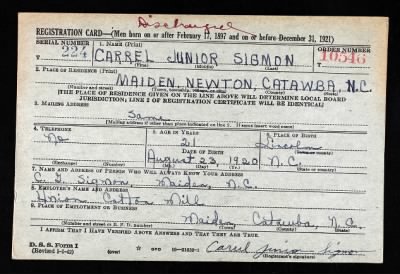 Discharged
REGISTRATION CARD—(Men born on or after February 17, 1897 and on or before December 31, 1921)
SERIAL NUMBER 1. NAME (Print) ORDER NUMBER
224 CARREL JUNIOR SIGMON 10546
(First) (Middle) (Last)
2. PLACE OF RESIDENCE (Print)
MAIDEN, NEWTON, CATAWBA, N.C.
(Number and street) (Town, township, village, or city) (County) (State)
[THE PLACE OF RESIDENCE GIVEN ON THE LINE ABOVE WILL DETERMINE LOCAL BOARD
JURISDICTION; LINE 2 OF REGISTRATION CERTIFICATE WILL BE IDENTICAL]
3. MAILING ADDRESS
Same
[Mailing address if other than place indicated on line 2. If same insert word same]
4. TELEPHONE 5. AGE IN YEARS 6. PLACE OF BIRTH
no 21 Lincoln
DATE OF BIRTH (Town or county)
August 23, 1920 N.C.
(Exchange) (Number) (Mo.) (Day) (Yr.) (State or country)
7. NAME AND ADDRESS OF PERSON WHO WILL ALWAYS KNOW YOUR ADDRESS
Sigmon, Maiden, N.C.
8. EMPLOYER'S NAME AND ADDRESS
Union Cotton Mill
9. PLACE OF EMPLOYMENT OR BUSINESS
Maiden Catawba, N.C.
(Number and street or R. F. D. number) (Town) (County) (State)
I AFFIRM THAT I HAVE VERIFIED ABOVE ANSWERS AND THAT THEY ARE TRUE.
D. S. S. Form 1
(Revised 1-1-42) (over) Carrel Junior Sigmon
(Registrant's signature)